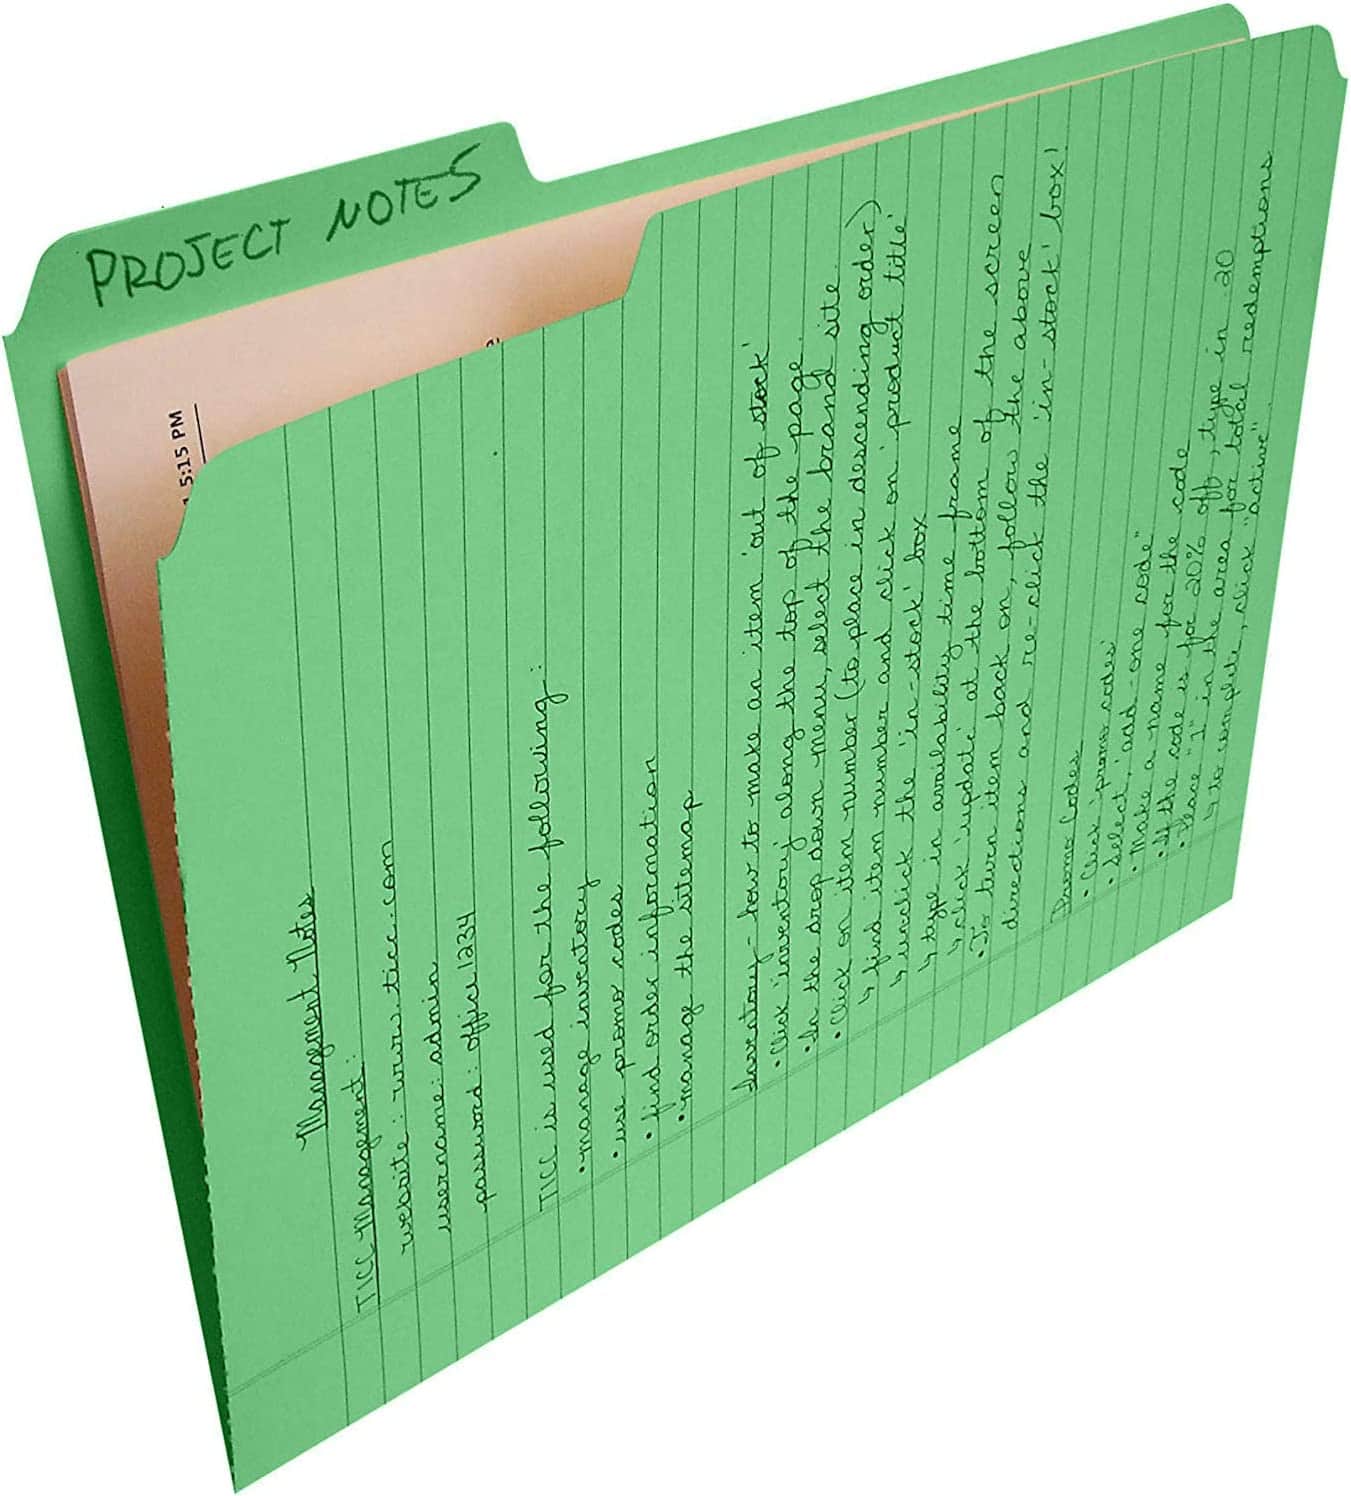 PROJECT NOTES
5:15 PM
Management Notes
TICC Management:
website: www.ticc.com
username: admin
password: office1234
TICC is used for the following:
• manage inventory
• use promo codes
• find order information
• manage the sitemap
Inventory - how to make an item 'out of stock'
• Click 'inventory' along the top of the page.
• In the drop down menu, select the brand site
• Click on item number (to place in descending order)
↳ find item number and click on 'product title'
↳ unclick the 'in-stock' box
↳ type in availability time frame
↳ click 'update' at the bottom of the screen
• To turn item back on, follow the above
directions and re-click the 'in-stock' box!
Promo Codes
• Click 'promo codes'
• Select, 'add one code"
• Make a name for the code
• If the code is for 20% off, type in .20
• Place "1" in the area for total redemptions
↳ to complete, click "active".